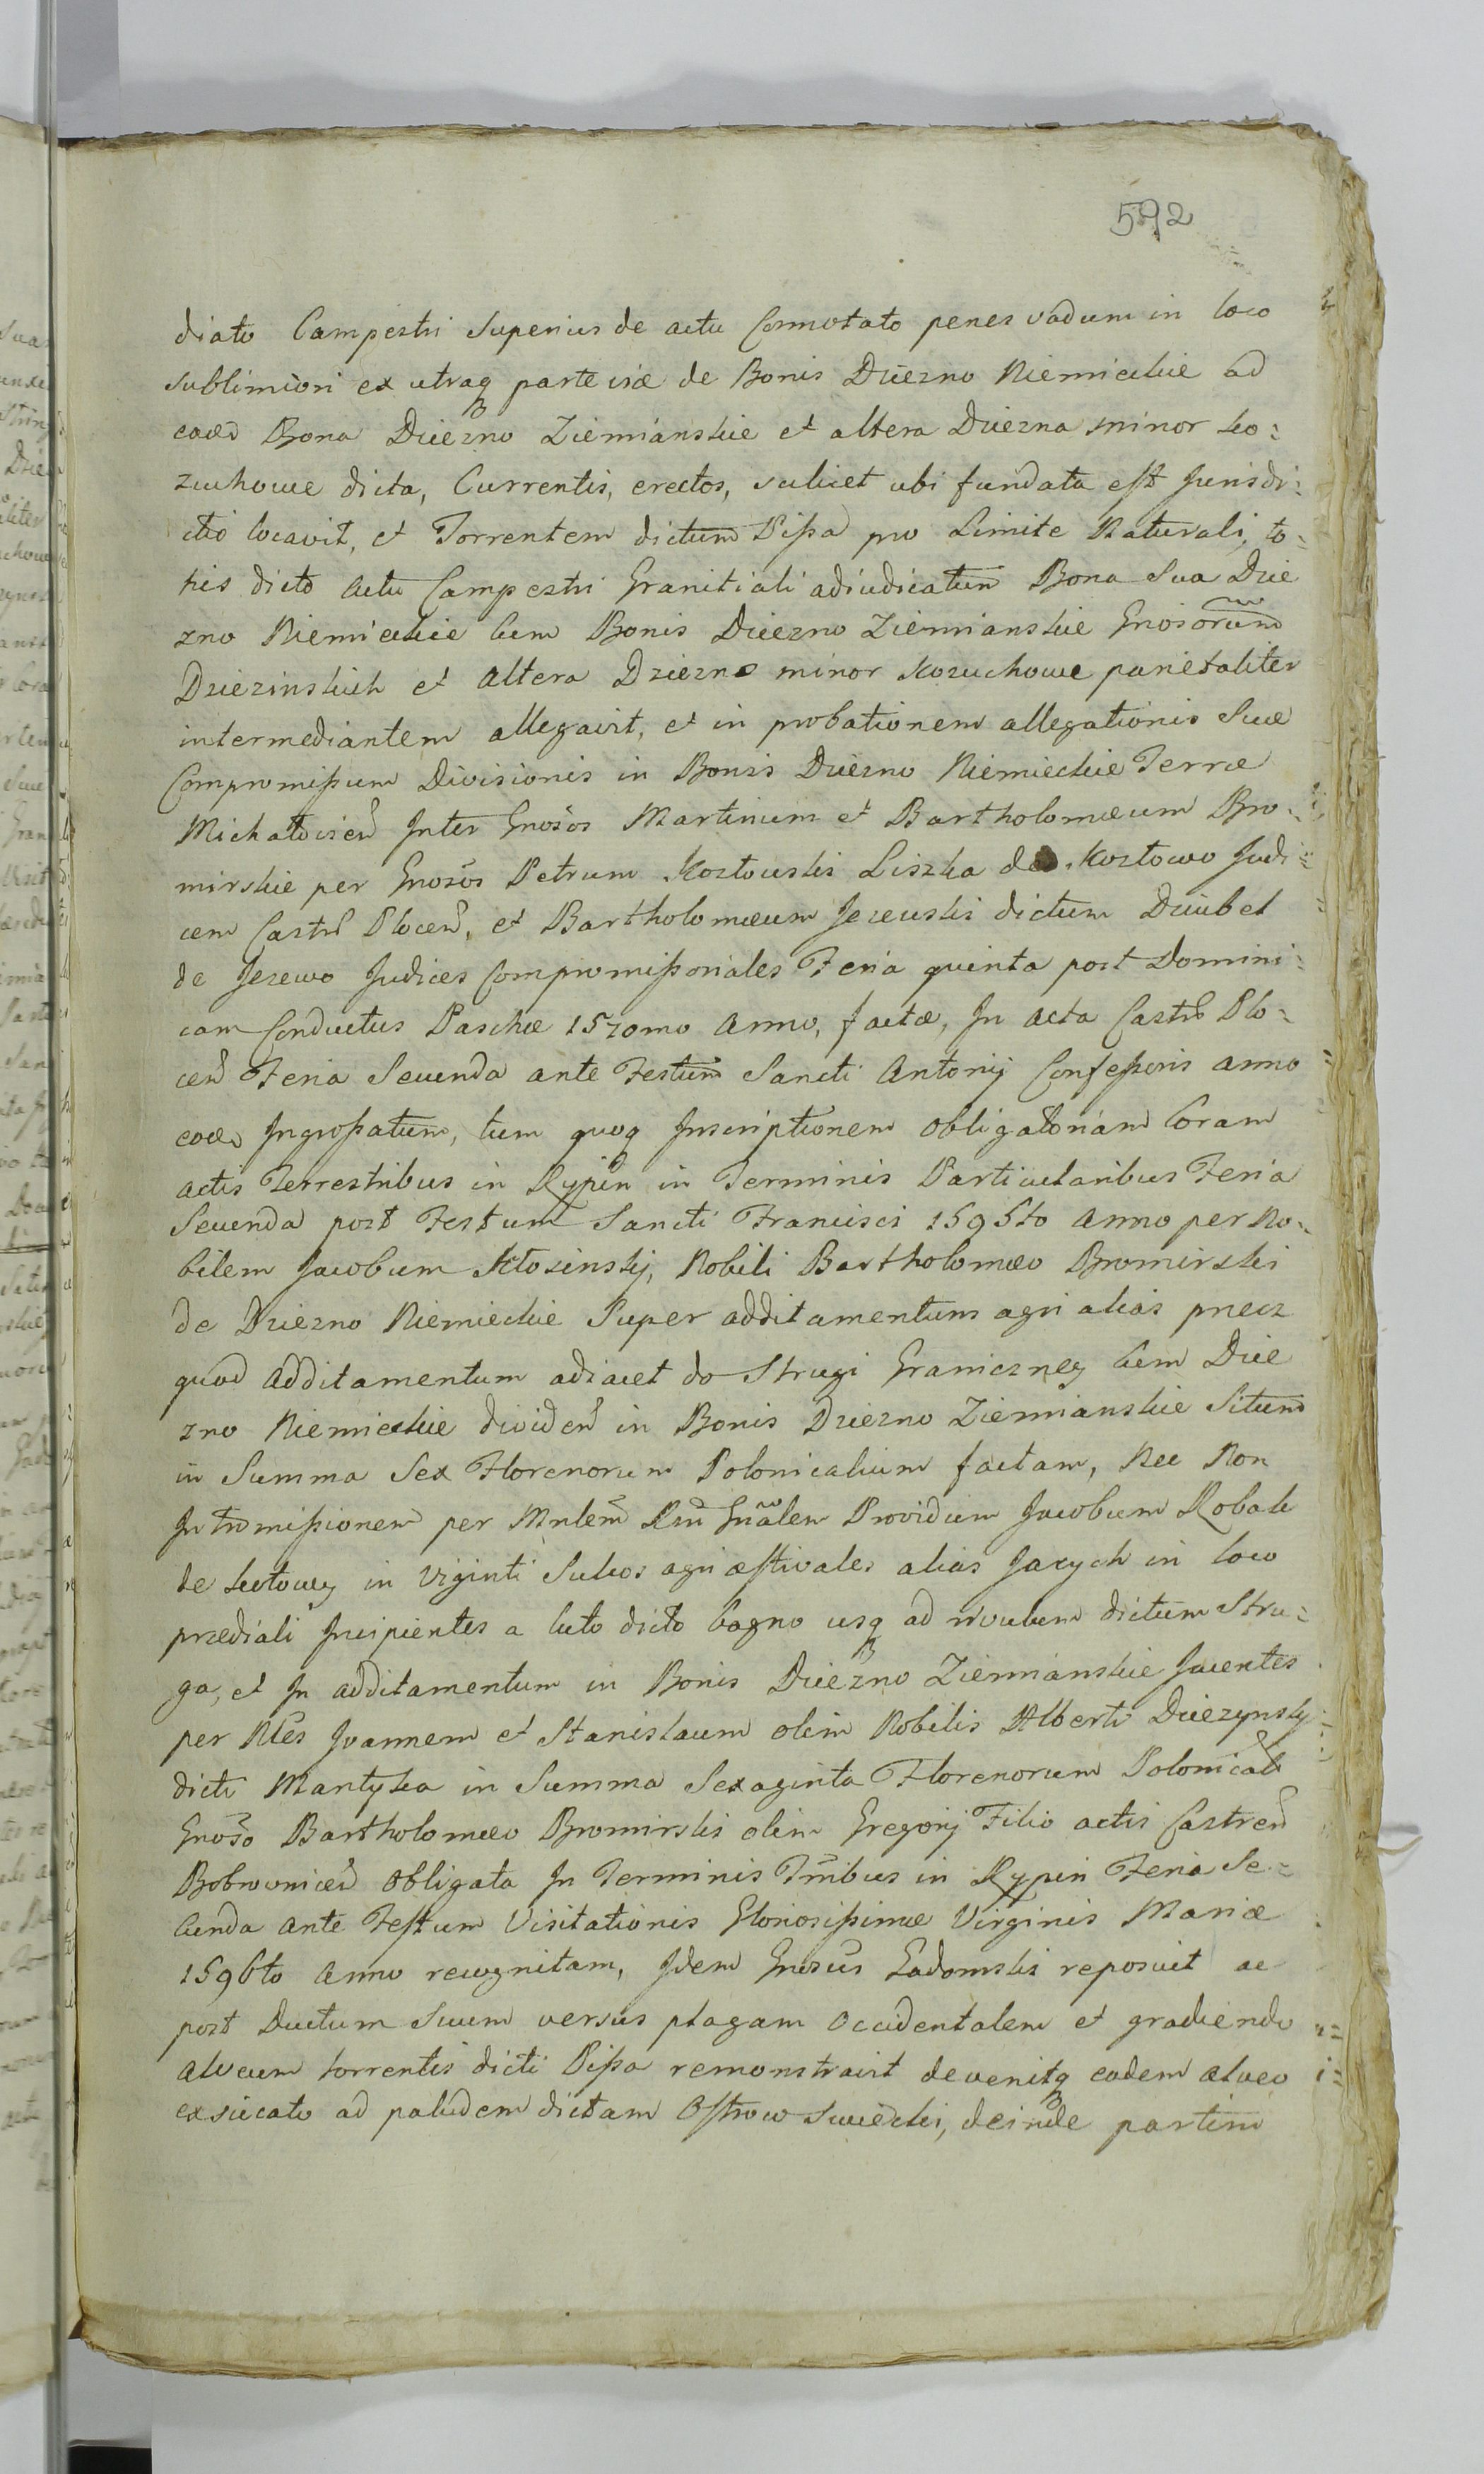 592
diato Campestri Superius de actu Connotato penes vadum in loco
sublimiori ex utraq parte viæ de Bonis Dziezno Niemieckie ad
eaed Bona Dziezno Ziemianskie et altera Dziezna minor Ko=
zuchowe dicta, Currentis, erectos, scilicet ubi fundata est Jurisdi=
ctio locavit, et Torrentem dictum Pissa pro Limite Naturali, to=
ties dicto Actu Campestri Granitiali adiudicatum Bona Sua Dzie
zno Niemieckie Cum Bonis Dziezno Ziemianskie Gnosorum
Dziezinskich et altera Dziezno minor Kozuchowe parietaliter
intermediantem allegavit, et in probationem allegationis Suæ
Compromissum Divisionis in Bonis Dziezno Niemieckie Terræ
Michałovien Inter Gnosos Martinum et Bartholomæum Bro=
mirskie per Gnosos Petrum Kozłowski Liszka de Kozłowo Judi=
cem Castr Plocen, et Bartholomæum Jezewski dictum Dziubel
de Jezewo Judices Compromissoriales Feria quinta post Domini=
cam Conductus Paschæ 1570mo Anno, factæ, In acta Castr Plo=
cen Feria Secunda ante Festum Sancti Antonij Confessoris anno
eoed Ingrossatum, tum quoq Inscriptionem obligatoriam Coram
actis Terrestribus in Rypin in Terminis Particularibus Feria
Secunda post Festum Sancti Francisci 1595to Anno per No=
bilem Jacobum Kłosinskj, Nobili Bartholomæo Bromirski
de Dziezno Niemieckie Super additamentum agri alias przecz
quod additamentum adiacet do Strugi Graniczney Cum Dzie
zno Niemieckie dividen in Bonis Dziezno Ziemianskie Situm
in Summa Sex Florenorum Polonicalium factam, Nec Non
Intromissionem per Mnlem Rni Gnalem Providum Jacobum Robak
de in Viginti Sulcos agri æstivales alias Jarych in loco
prædiali Incipientes a luto dicto bagno usq ad rivulum dictum Stru=
ga, et In additamentum in Bonis Dziezno Ziemianskie Jacentes
per Nles Joannem et Stanislaum olim Nobilis Alberti Dziezynsky
dicti Mantyka in Summa Sexaginta Florenorum Polonical
Gnoso Bartholomæo Bromirski olim Gregorij Filio actis Castren
Bobrownicen obligata In Terminis Tribus in Rypin Feria Se=
cunda ante Festum Visitationis Gloriosissimæ Virginis Mariæ
1596to Anno recognitam, Idem Gnosus Ladomski reposuit ac
post Ductum Suum versus plagam Occidentalem et gradiendo
alveum torrentis dicti Pissa remonstravit devenitq eodem alveo
exsiccato ad paludem dictam Ostrow Swiecki, deinde partim